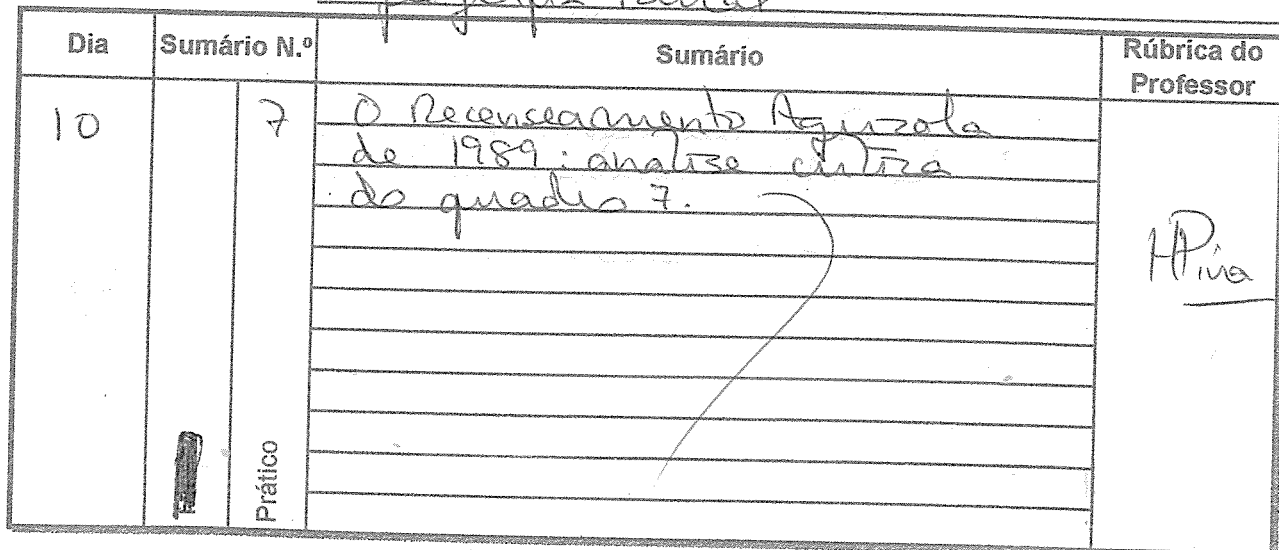 Dia Sumário N.º Sumário Rúbrica do Professor
10 7 O Recenseamento Agrizola
de 1989: analise critica
do quadro 7.
HPina
Prático